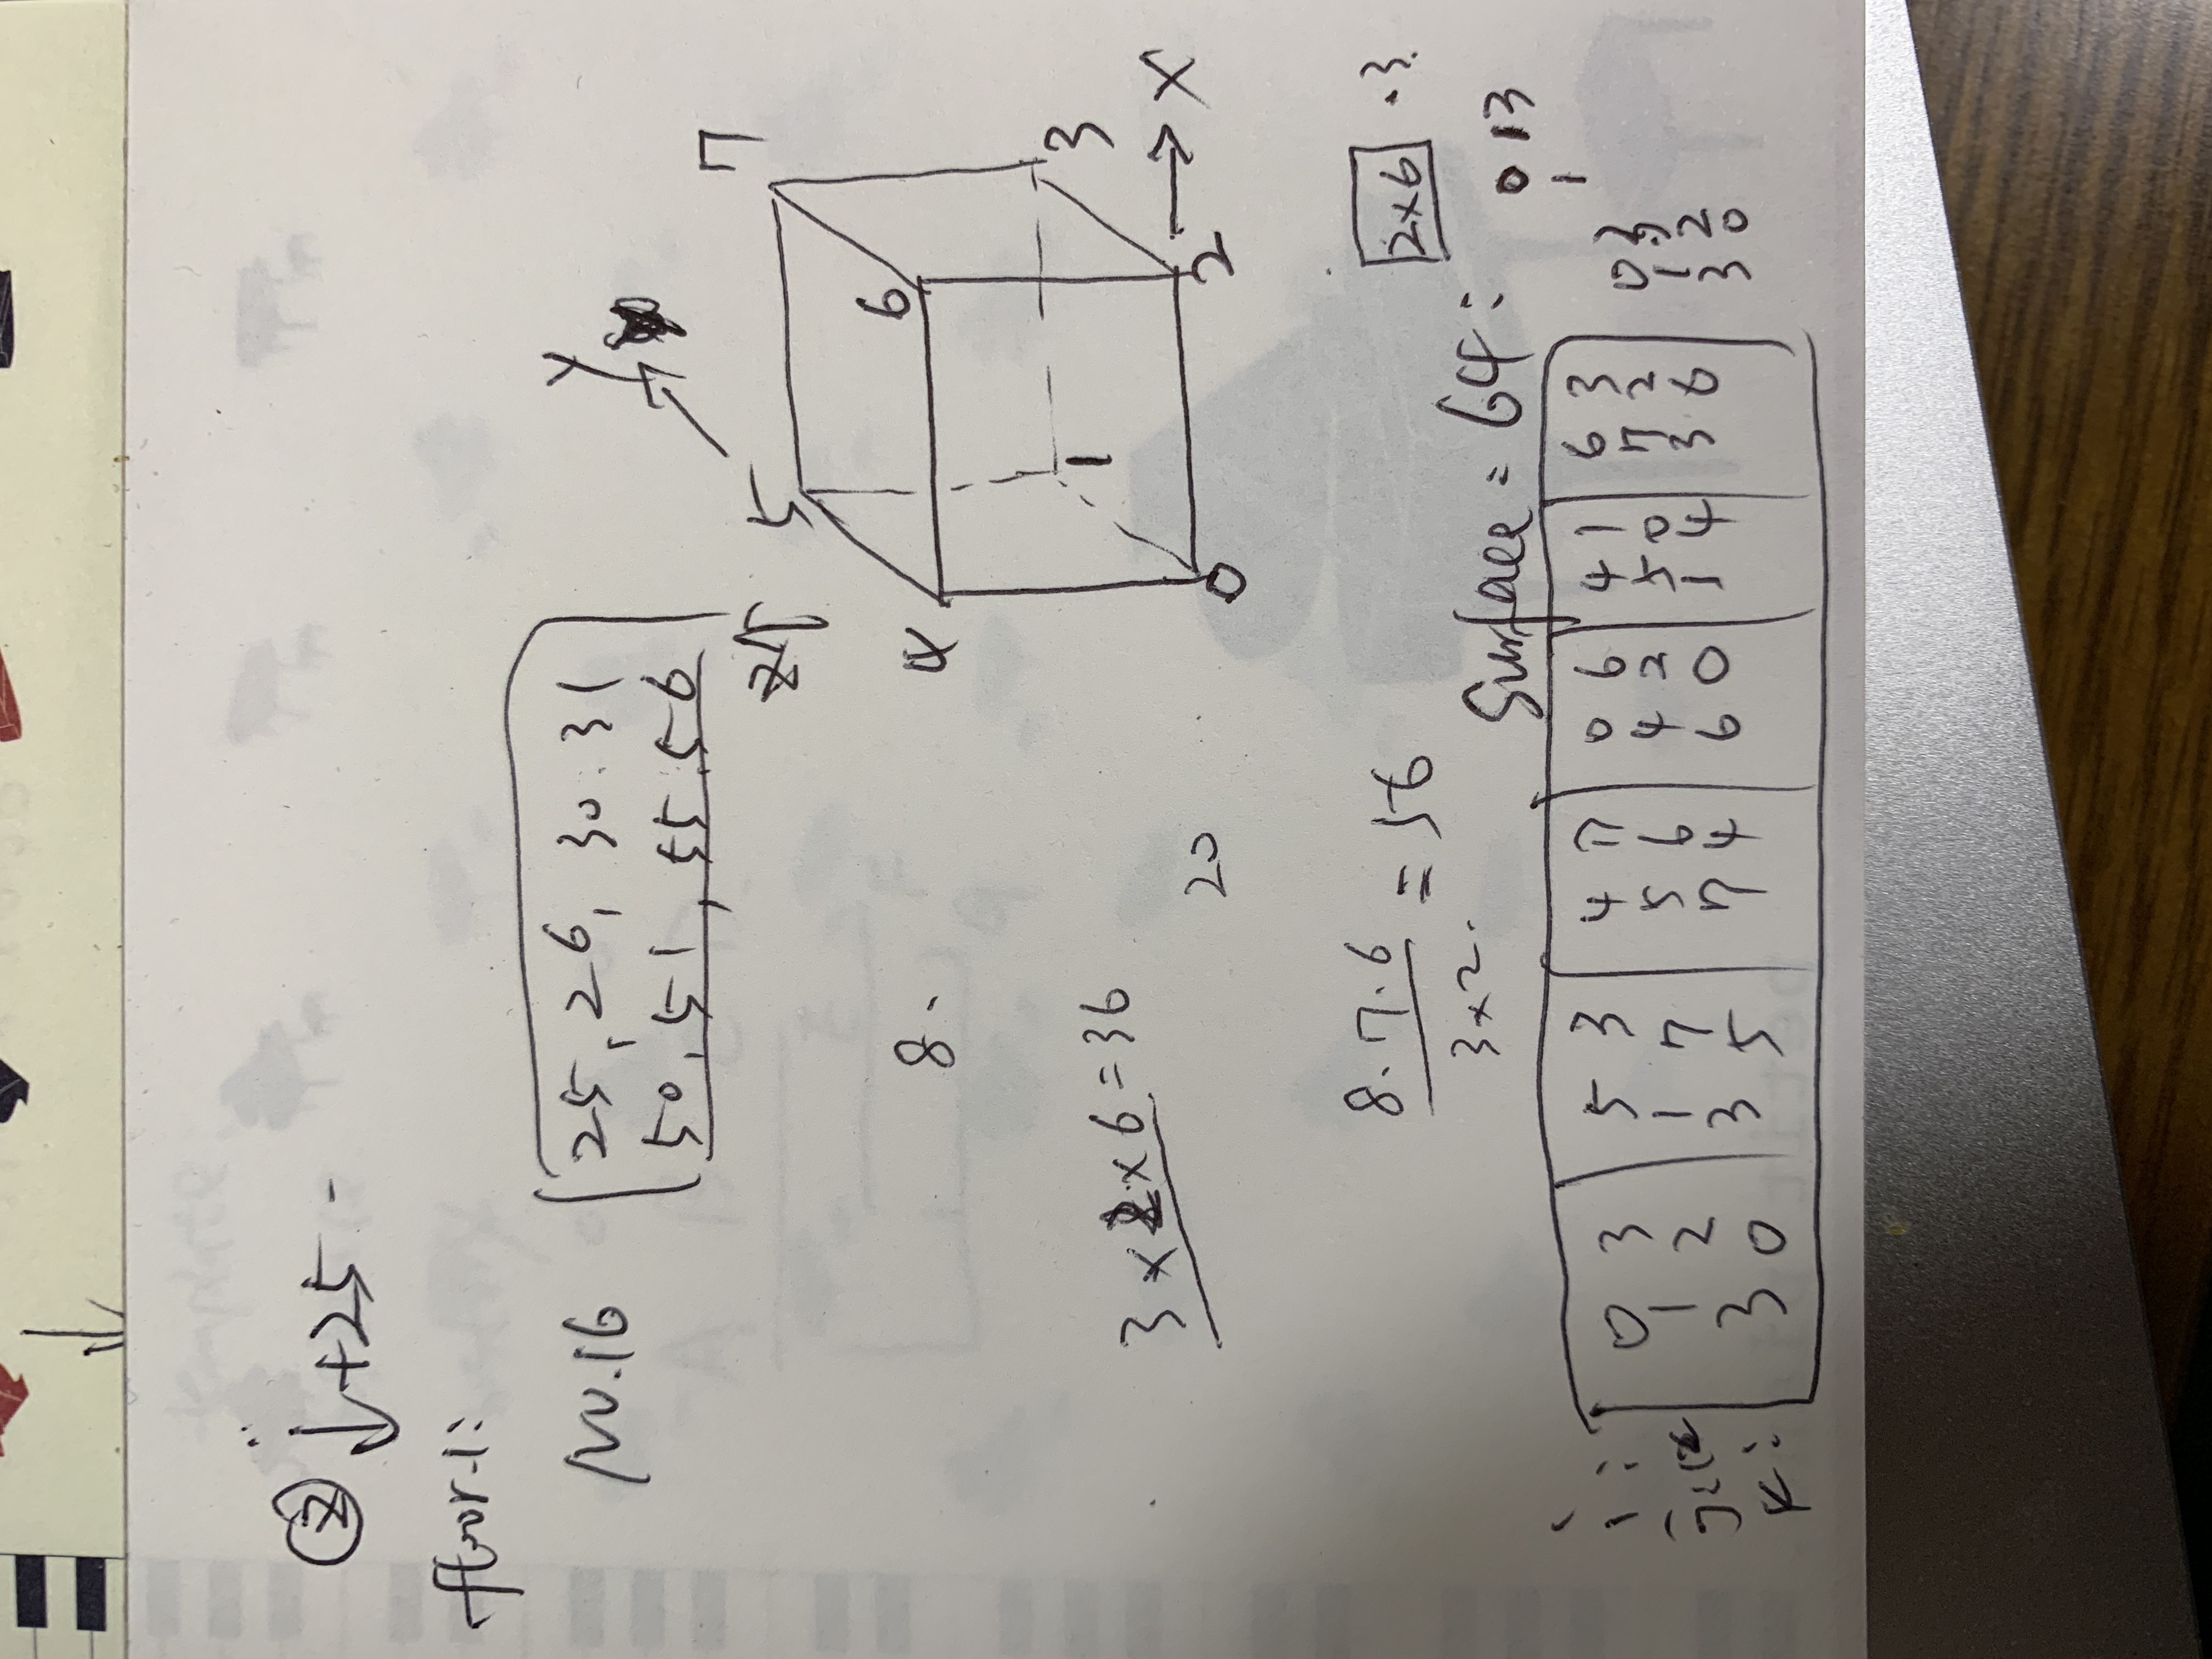 ② ↓+25 -
floor-1:
NO.16
25, 26, 30. 31
50, 51, 55. 56
Y
Z↑
5 7
4 6
1 3
0 2 → X
8.
3 x 2 x 6 = 36
20
8.7.6
3x2.
= 56
2x6 .3.
Surface = 64:
0 13
1
i: 0 3 5 3 4 7 0 6 4 1 6 3
j: 1 2 1 7 5 6 4 2 5 0 7 2
k: 3 0 3 5 7 4 6 0 1 4 3 6
0 3
1 2
3 0